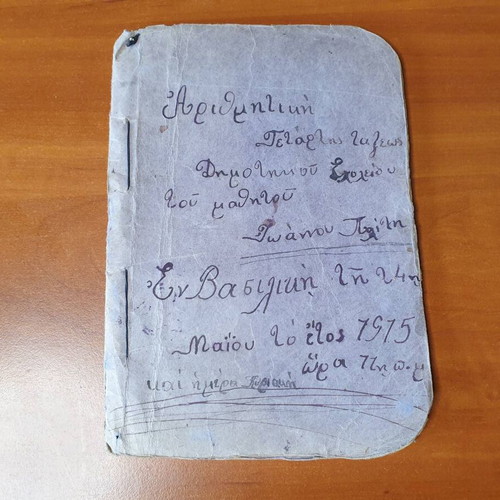 Ἀριθμητικὴ
Τετάρτης τάξεως
Δημοτικοῦ Σχολείου
τοῦ μαθητοῦ
Ἰωάννου
Ἐν Βασιλικῇ τῇ 24ῃ
Μαΐου τὸ ἔτος 1915
ὥρα 11η π.μ
καὶ ἡμέρα Κυριακὴ